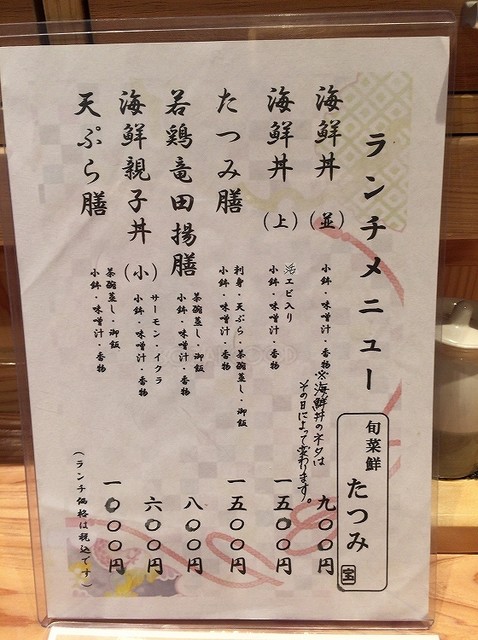 ランチメニュー
旬菜鮮
たつみ
宝
海鮮丼（並）
小鉢・味噌汁・香物
※海鮮丼のネタは
その日によって変わります。
九〇〇円
海鮮丼（上）
活エビ入り
小鉢・味噌汁・香物
一五〇〇円
たつみ膳
刺身・天ぷら・茶碗蒸し・御飯
小鉢・味噌汁・香物
一五〇〇円
若鶏竜田揚膳
茶碗蒸し・御飯
小鉢・味噌汁・香物
八〇〇円
海鮮親子丼（小）
サーモン・イクラ
小鉢・味噌汁・香物
六〇〇円
天ぷら膳
茶碗蒸し・御飯
小鉢・味噌汁・香物
一〇〇〇円
（ランチ価格は税込です）